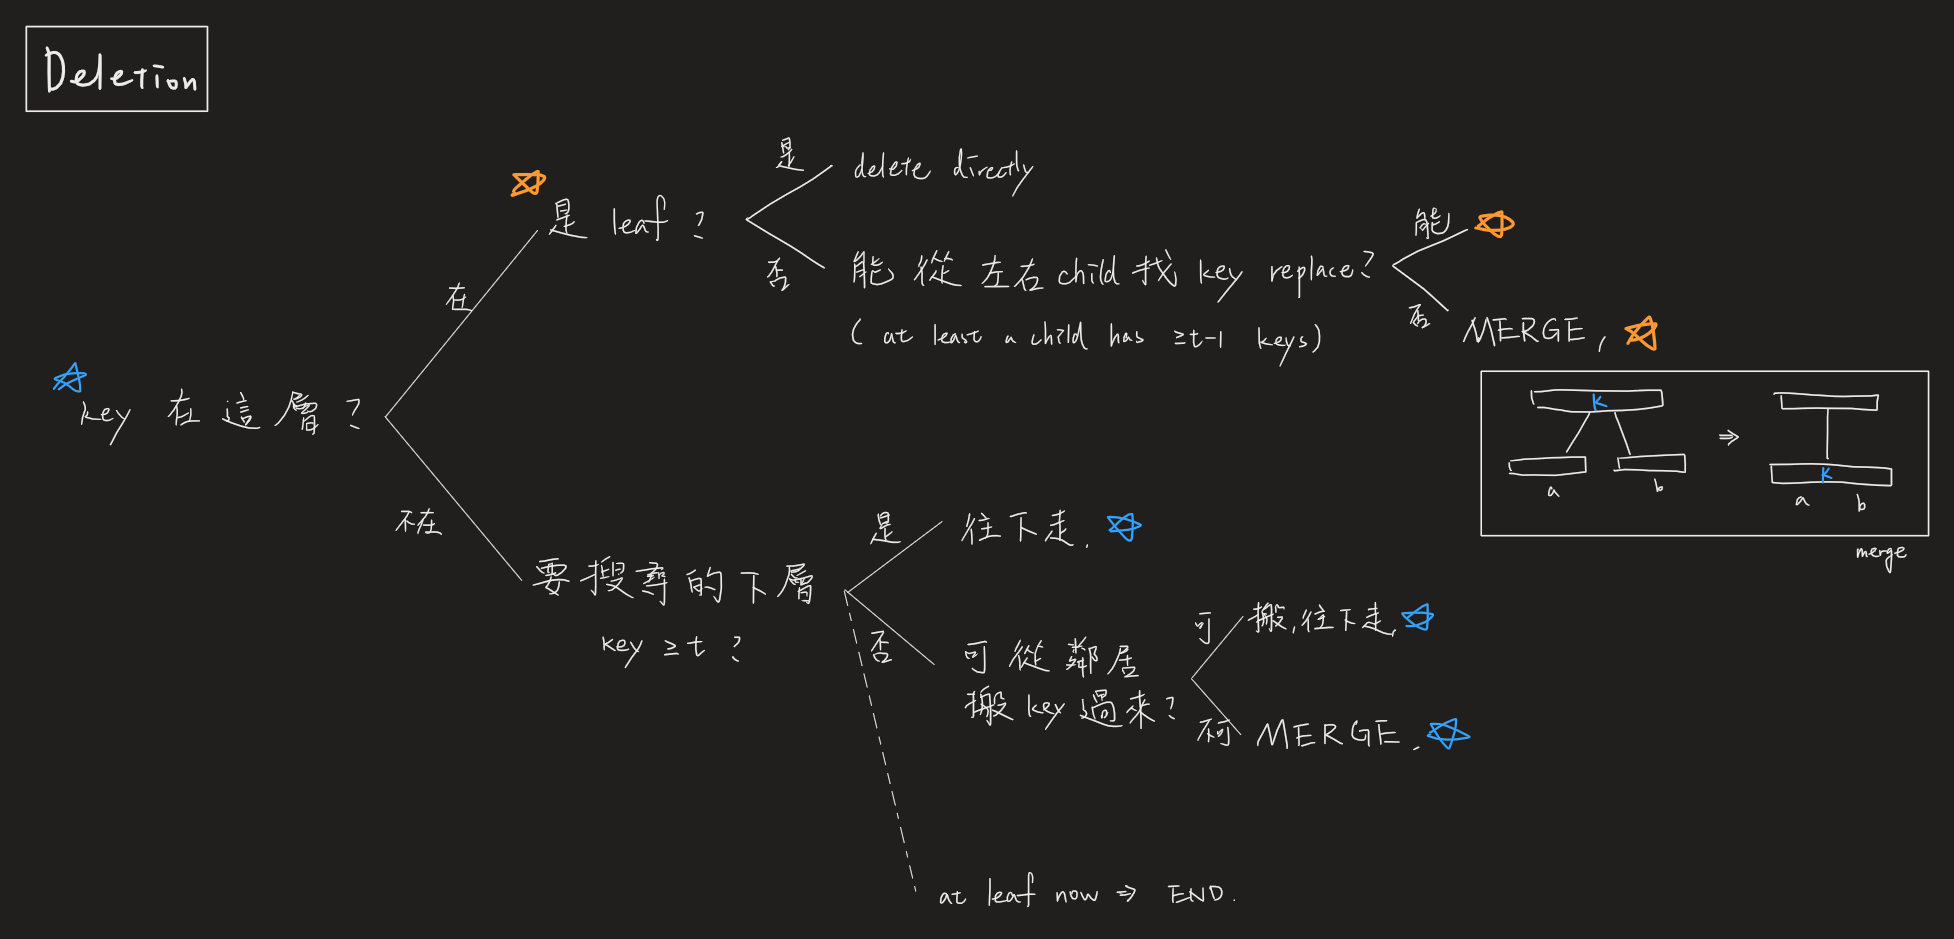 Deletion
key 在這層?
在
不在
是 leaf?
是
delete directly
否
能從左右child找 key replace?
(at least a child has ≥t-1 keys)
能
否
MERGE,
K
a b
⇒
K
a b
merge
要搜尋的下層
key ≥ t ?
是
往下走.
否
可從鄰居
搬key過來?
可
搬,往下走,
不可
MERGE.
at leaf now ⇒ END.